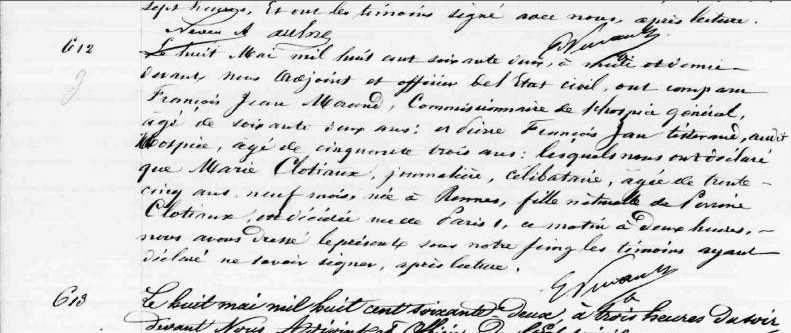 sept heures, Et ont les témoins signé avec nous, après lecture.
612
Le huit Mai mil huit cent soixante deux, à midi et demie
devant nous Adjoint et officier de l'Etat civil, ont comparu
François Jean Morand, Commissionnaire de l'hospice général,
âgé de soixante deux ans: et François Jan audit
Hospice, âgé de cinquante trois ans: lesquels nous ont déclaré
que Marie Clotiaux, journalière, célibataire, âgée de trente-
cinq ans neuf mois, née à Rennes, fille naturelle de Perrine
Clotiaux, est décédée rue de Paris 1, ce matin à deux heures,
nous avons dressé le présent sous notre seing les témoins ayant
déclaré ne savoir signer, après lecture.
613
Le huit mai mil huit cent soixante-deux, à trois heures du soir
devant Nous